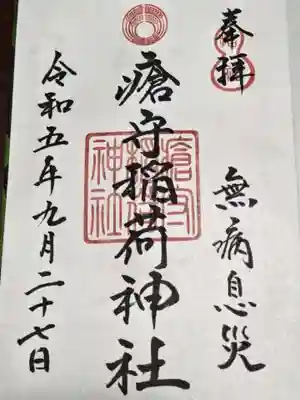 奉拝
無病息災
瘡守稲荷神社
令和五年九月二十七日
瘡守稲荷神社